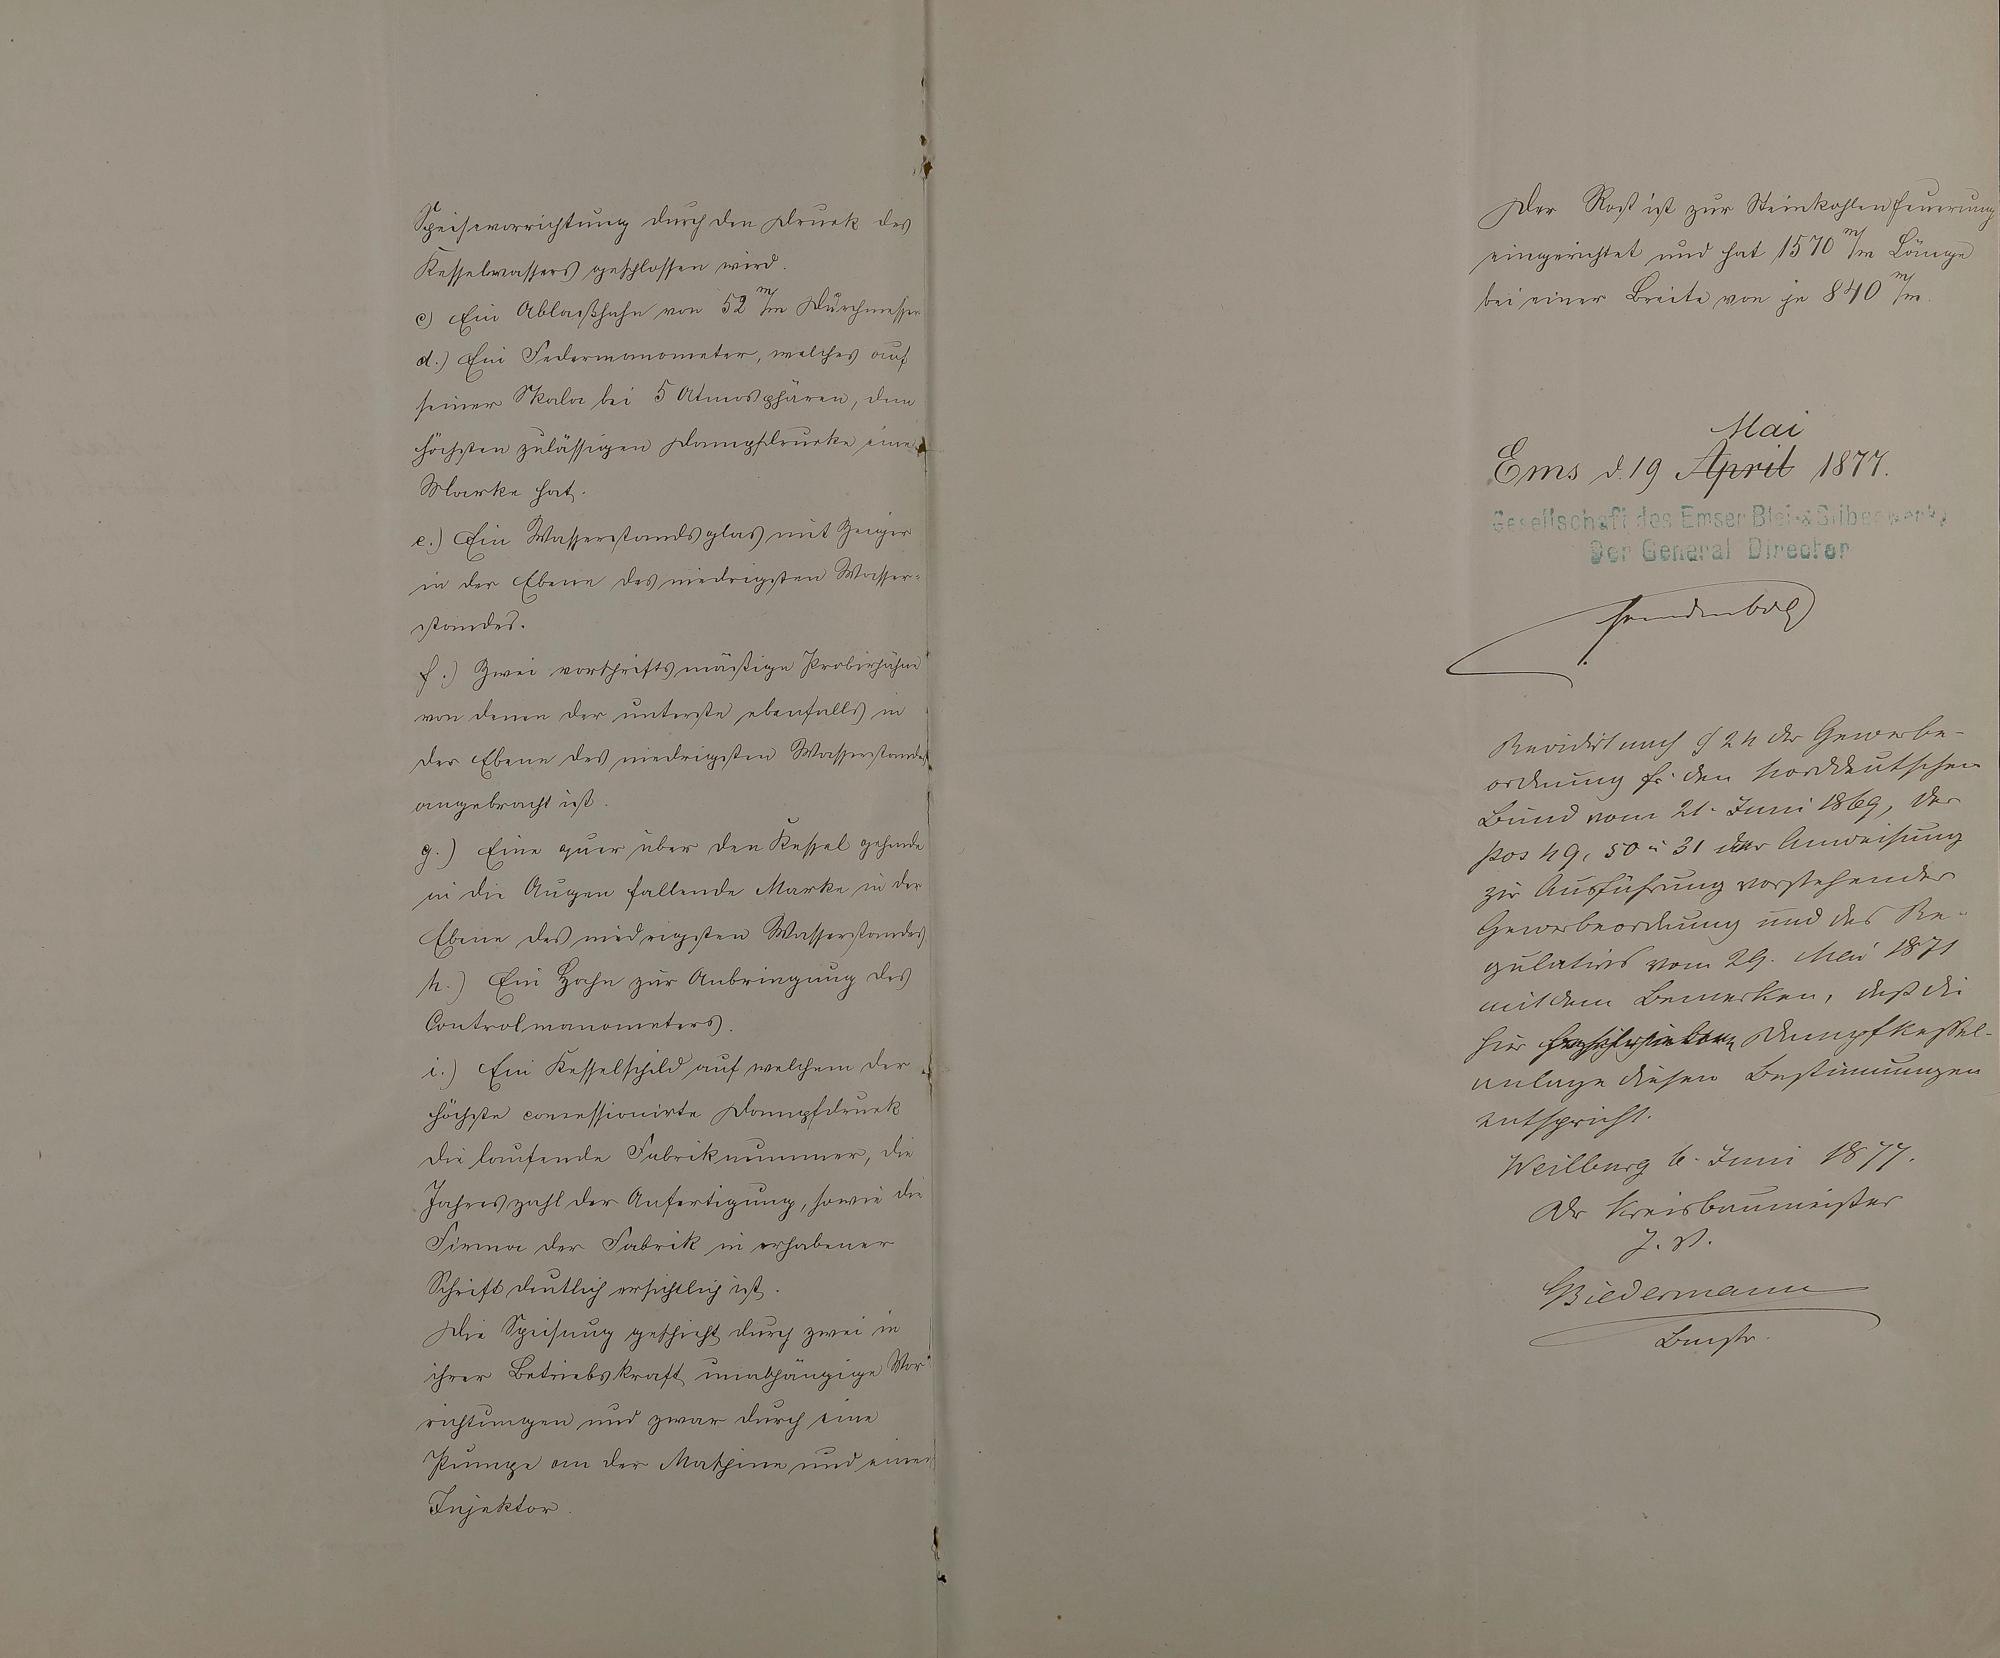 Speisevorrichtung durch den Druck des
Kesselwassers geschlossen wird.
c) Ein Ablaßhahn von 52 m/m Durchmesser
d.) Ein Federmanometer, welches auf
seiner Skala bei 5 Atmosphären, dem
höchsten zulässigen Dampfdrucke eine
Marke hat.
e.) Ein Wasserstandsglas mit Zeiger
in der Ebene des niedrigsten Wasser-
standes.
f.) Zwei vorschriftsmäßige Probirhähne
von denen der unterste ebenfalls in
der Ebene des niedrigsten Wasserstandes
angebracht ist.
g.) Eine quer über den Kessel gehende
in die Augen fallende Marke in der
Ebene des niedrigsten Wasserstandes
h.) Ein Hahn zur Anbringung des
Controlmanometers.
i.) Ein Kesselschild auf welchem der
höchste concessionirte Dampfdruck
die laufende Fabriknummer, die
Jahreszahl der Anfertigung, sowie die
Firma der Fabrik in erhabener
Schrift deutlich ersichtlich ist.
Die Speisung geschieht durch zwei in
ihrer Betriebskraft unabhängige Vor-
richtungen und zwar durch eine
Pumpe an der Maschine und einen
Injektor.
Der Rost ist zur Steinkohlenfeuerung
eingerichtet und hat 1570 m/m Länge
bei einer Breite von je 840 m/m.
Mai
Ems d. 19 April 1877.
Gesellschaft des Emser Blei-& Silberwerks
Der General Director
Freudenberg
Revidirt nach § 24 der Gewerbe-
ordnung fr. den Norddeutschen
Bund vom 21. Juni 1869, der
Pos 49, 50 u 31 der Anweisung
zur Ausführung vorstehender
Gewerbeordnung und des Re-
gulativs vom 29. Mai 1871
mit dem Bemerken, daß die
hier Dampfkessel-
anlage diesen Bestimmungen
entspricht.
Weilburg 6. Juni 1877.
Der Kreisbaumeister
J. V.
Biedermann
Bmstr.